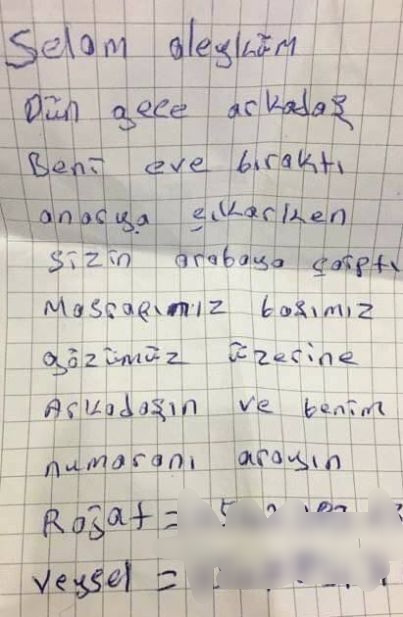 Selam aleyküm
Dün gece arkadaş
Beni eve bıraktı
anasya çıkarken
sizin arabaya çarptı
Masrafınız başımız
gözümüz üzerine
Arkadaşın ve benim
numaramı arayın
Roşat =
veysel =